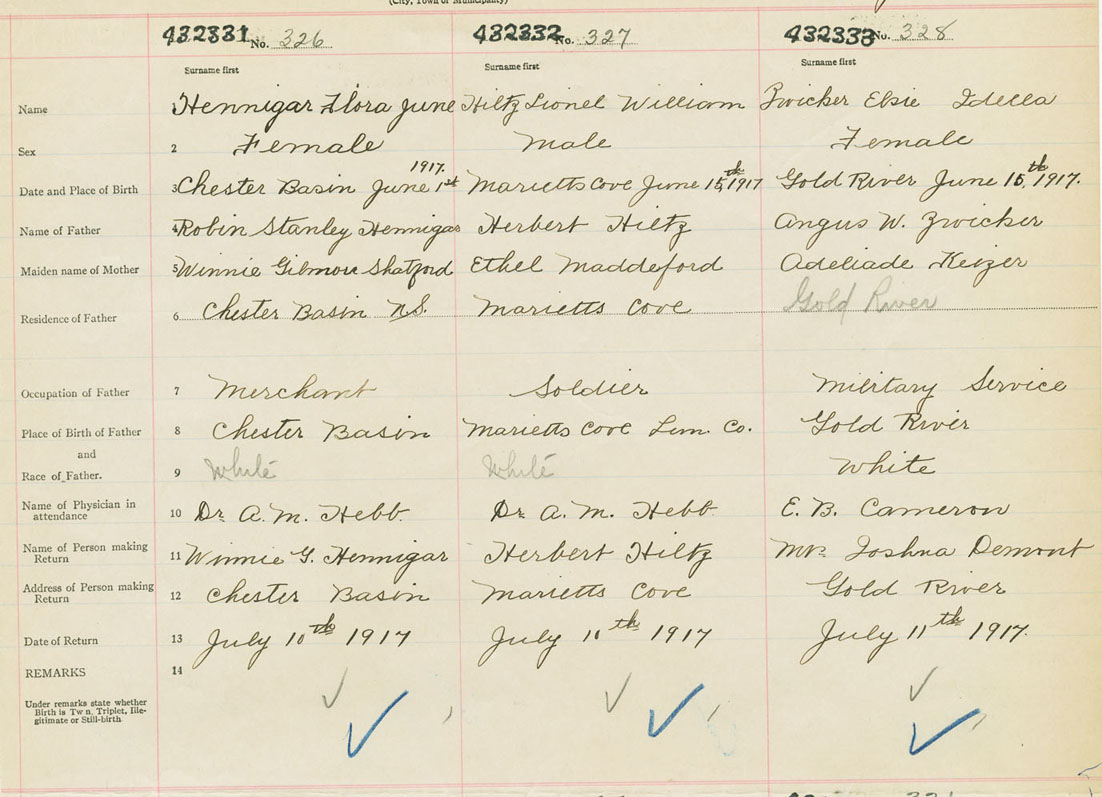 (City, Town or Municipality)
432331 No. 326 432332 No. 327 432333 No. 328
Surname first Surname first Surname first
Name 1 Hennigar Flora June Hiltz Lionel William Zwicker Elsie Idella
Sex 2 Female Male Female
1917.
Date and Place of Birth 3 Chester Basin June 1st Marietts Cove June 15th 1917 Gold River June 15th 1917.
Name of Father 4 Robin Stanley Hennigar Herbert Hiltz Angus W. Zwicker
Maiden name of Mother 5 Winnie Gilmore Shatford Ethel Maddeford Adeliade Keizer
Residence of Father 6 Chester Basin N.S. Marietts Cove Gold River
Occupation of Father 7 Merchant Soldier Military Service
Place of Birth of Father 8 Chester Basin Marietts Cove Lun. Co. Gold River
and
Race of Father. 9 White White White
Name of Physician in
attendance 10 Dr. A. M. Hebb. Dr. A. M. Hebb E. B. Cameron
Name of Person making
Return 11 Winnie G. Hennigar Herbert Hiltz Mrs. Joshua Demont
Address of Person making
Return 12 Chester Basin Marietts Cove Gold River
Date of Return 13 July 10th 1917 July 10th 1917 July 11th 1917.
REMARKS 14
Under remarks state whether
Birth is Twn, Triplet, Ille-
gitimate or Still-birth